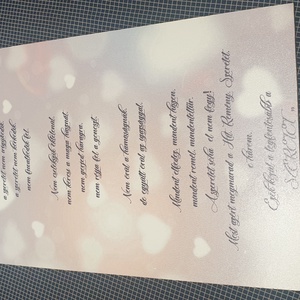 a szeretet nem irigykedik,
a szeretet nem kérkedik,
nem fuvalkodik fel.
Nem cselekszik éktelenül,
nem keresi a maga hasznát,
nem gerjed haragra,
nem rójja fel a gonoszt.
Nem örül a hamisságnak,
de együtt örül az igazsággal.
Mindent elfedez, mindent hiszen,
mindent remél, mindent eltűr.
A szeretet soha el nem fogy!
Most azért megmarad a Hit, Remény, Szeretet,
e három.
Ezek közül a legfontosabb a
SZERETET"